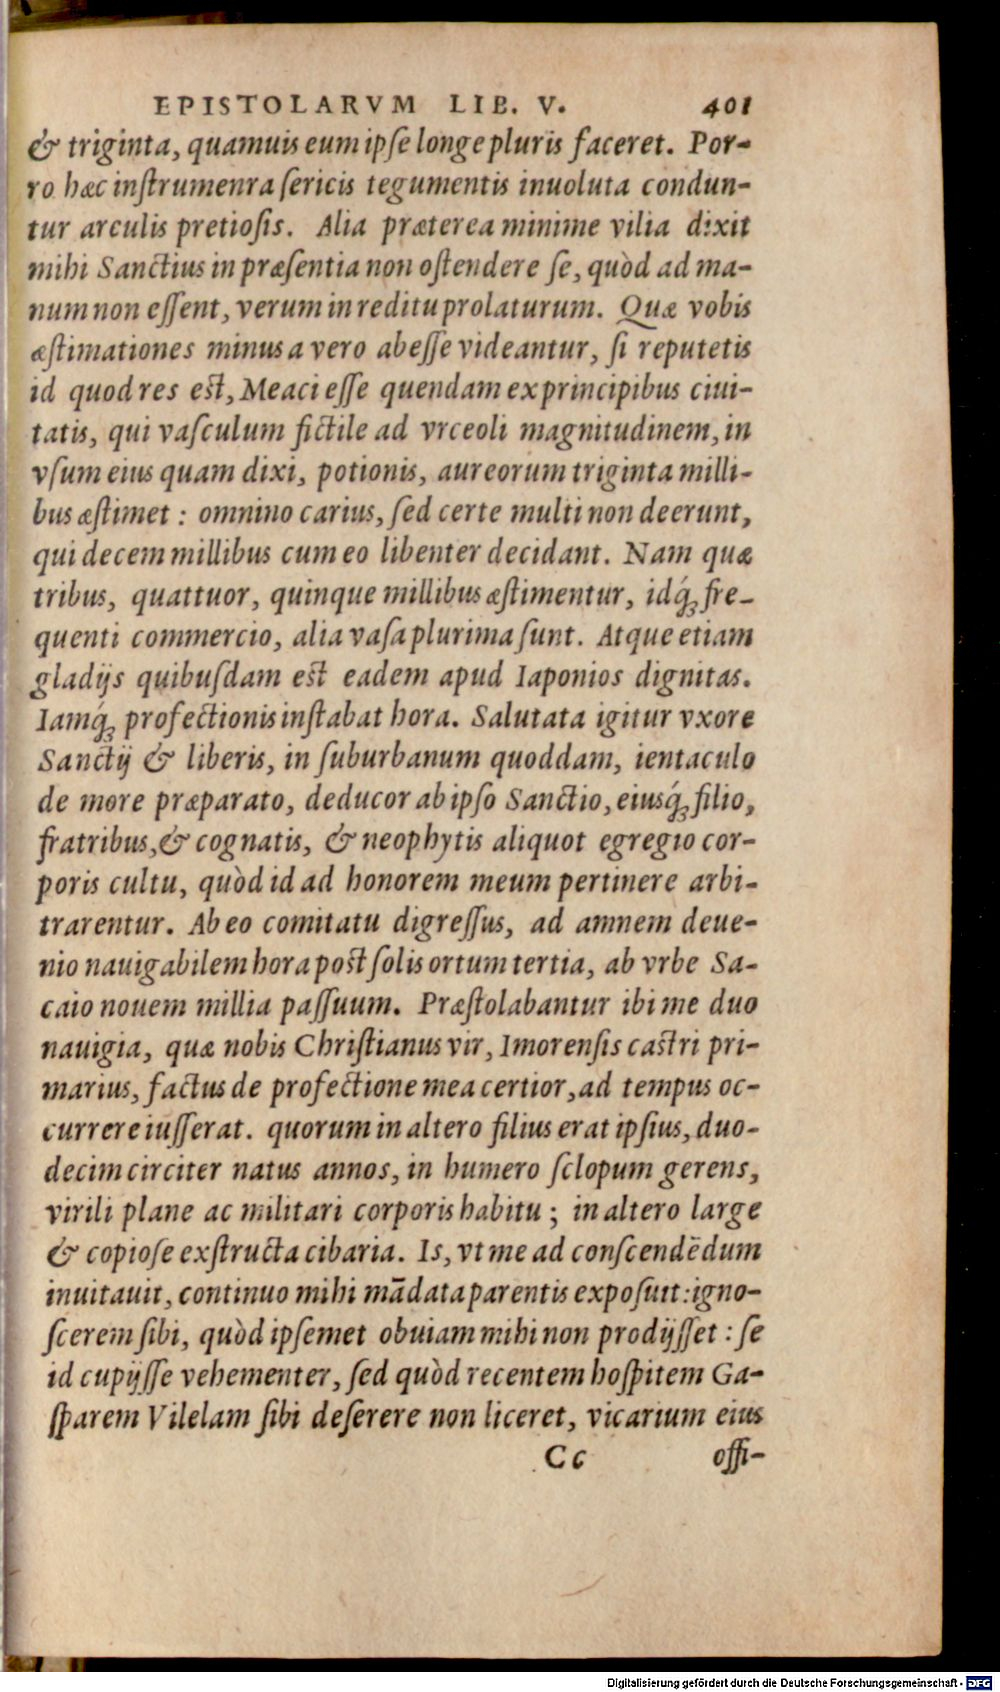 EPISTOLARVM LIB. V. 401
& triginta, quamuis eum ipſe longe pluris faceret. Por-
ro hæc inſtrumenra ſericis tegumentis inuoluta condun-
tur arculis pretioſis. Alia præterea minime vilia dixit
mihi Sanctius in præſentia non oſtendere ſe, quòd ad ma-
num non eſſent, verum in reditu prolaturum. Quæ vobis
æſtimationes minus a vero abeſſe videantur, ſi reputetis
id quod res eſt, Meaci eſſe quendam ex principibus ciui-
tatis, qui vaſculum fictile ad vrceoli magnitudinem, in
vſum eius quam dixi, potionis, aureorum triginta milli-
bus æſtimet : omnino carius, ſed certe multi non deerunt,
qui decem millibus cum eo libenter decidant. Nam quæ
tribus, quattuor, quinque millibus æſtimentur, idq́ꝫ fre-
quenti commercio, alia vaſa plurima ſunt. Atque etiam
gladijs quibuſdam eſt eadem apud Iaponios dignitas.
Iamq́ꝫ profectionis inſtabat hora. Salutata igitur vxore
Sanctij & liberis, in ſuburbanum quoddam, ientaculo
de more præparato, deducor ab ipſo Sanctio, eiusq́ꝫ filio,
fratribus, & cognatis, & neophytis aliquot egregio cor-
poris cultu, quòd id ad honorem meum pertinere arbi-
trarentur. Ab eo comitatu digreſſus, ad amnem deue-
nio nauigabilem hora poſt ſolis ortum tertia, ab vrbe Sa-
caio nouem millia paſſuum. Præſtolabantur ibi me duo
nauigia, quæ nobis Chriſtianus vir, Imorenſis caſtri pri-
marius, factus de profectione mea certior, ad tempus oc-
currere iuſſerat. quorum in altero filius erat ipſius, duo-
decim circiter natus annos, in humero ſclopum gerens,
virili plane ac militari corporis habitu ; in altero large
& copioſe exſtructa cibaria. Is, vt me ad conſcendēdum
inuitauit, continuo mihi mādata parentis expoſuit: igno-
ſcerem ſibi, quòd ipſemet obuiam mihi non prodijſſet : ſe
id cupijſſe vehementer, ſed quòd recentem hoſpitem Ga-
ſparem Vilelam ſibi deſerere non liceret, vicarium eius
Cc offi-
Digitalisierung gefördert durch die Deutsche Forschungsgemeinschaft - DFG